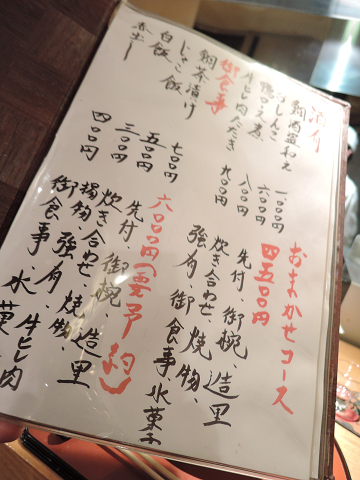 酒肴
鯛酒盗和え 一、〇〇〇円
おしんこ 六〇〇円
鴨ロース煮 八〇〇円
牛ヒレ肉たたき 九〇〇円
御食事
鯛茶漬け 七〇〇円
じゃこ飯 五〇〇円
白飯 三〇〇円
赤出し 四〇〇円
おまかせコース
四五〇〇円
先付、御椀、造里
炊き合わせ、焼物、
強肴、御食事 水菓子
六〇〇〇円(要予約)
先付、御椀、造里
炊き合わせ、焼物、
揚物、強肴、牛ヒレ肉
御食事、水菓